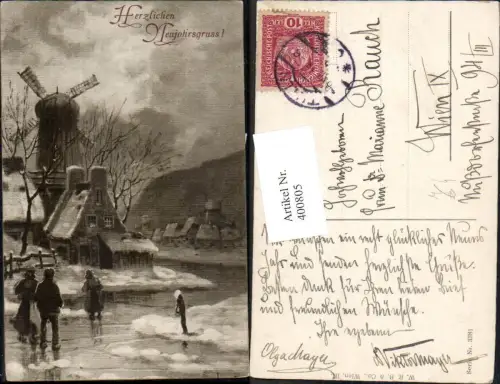 Herzlichen
Neujahrsgruss!
10
Artikel Nr.
400805
Hochwohlgeboren
Frau Dr Marianne Rauch
Wien IX
Wir wünschen ein recht glückliches Neues
Jahr und senden herzlichste Grüße.
Besten Dank für Ihren lieben Brief
und freundlichen Wünsche.
Ihre ergebene
Olga Mayer
Viktor Mayer
W. R. B. & Co., Wien, III
Serie Nr.